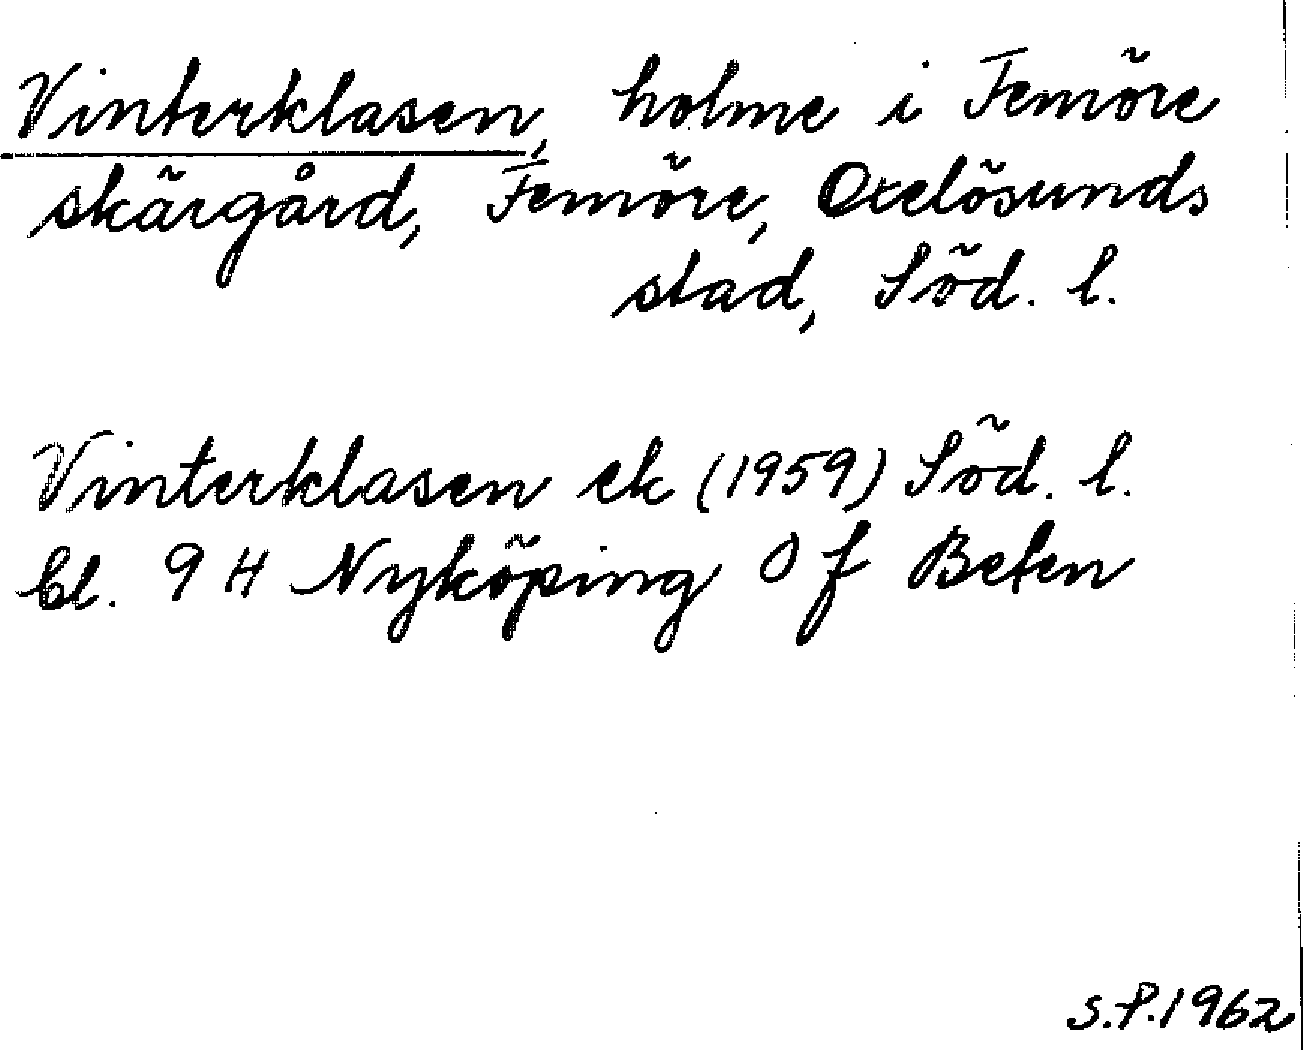 Vinterklasen, holme i Femöre
skärgård, Femöre, Oxelösunds
stad, Söd. l.
Vinterklasen ek (1959) Söd. l.
bl. 9 H Nyköping Of Beten
S.P. 1962